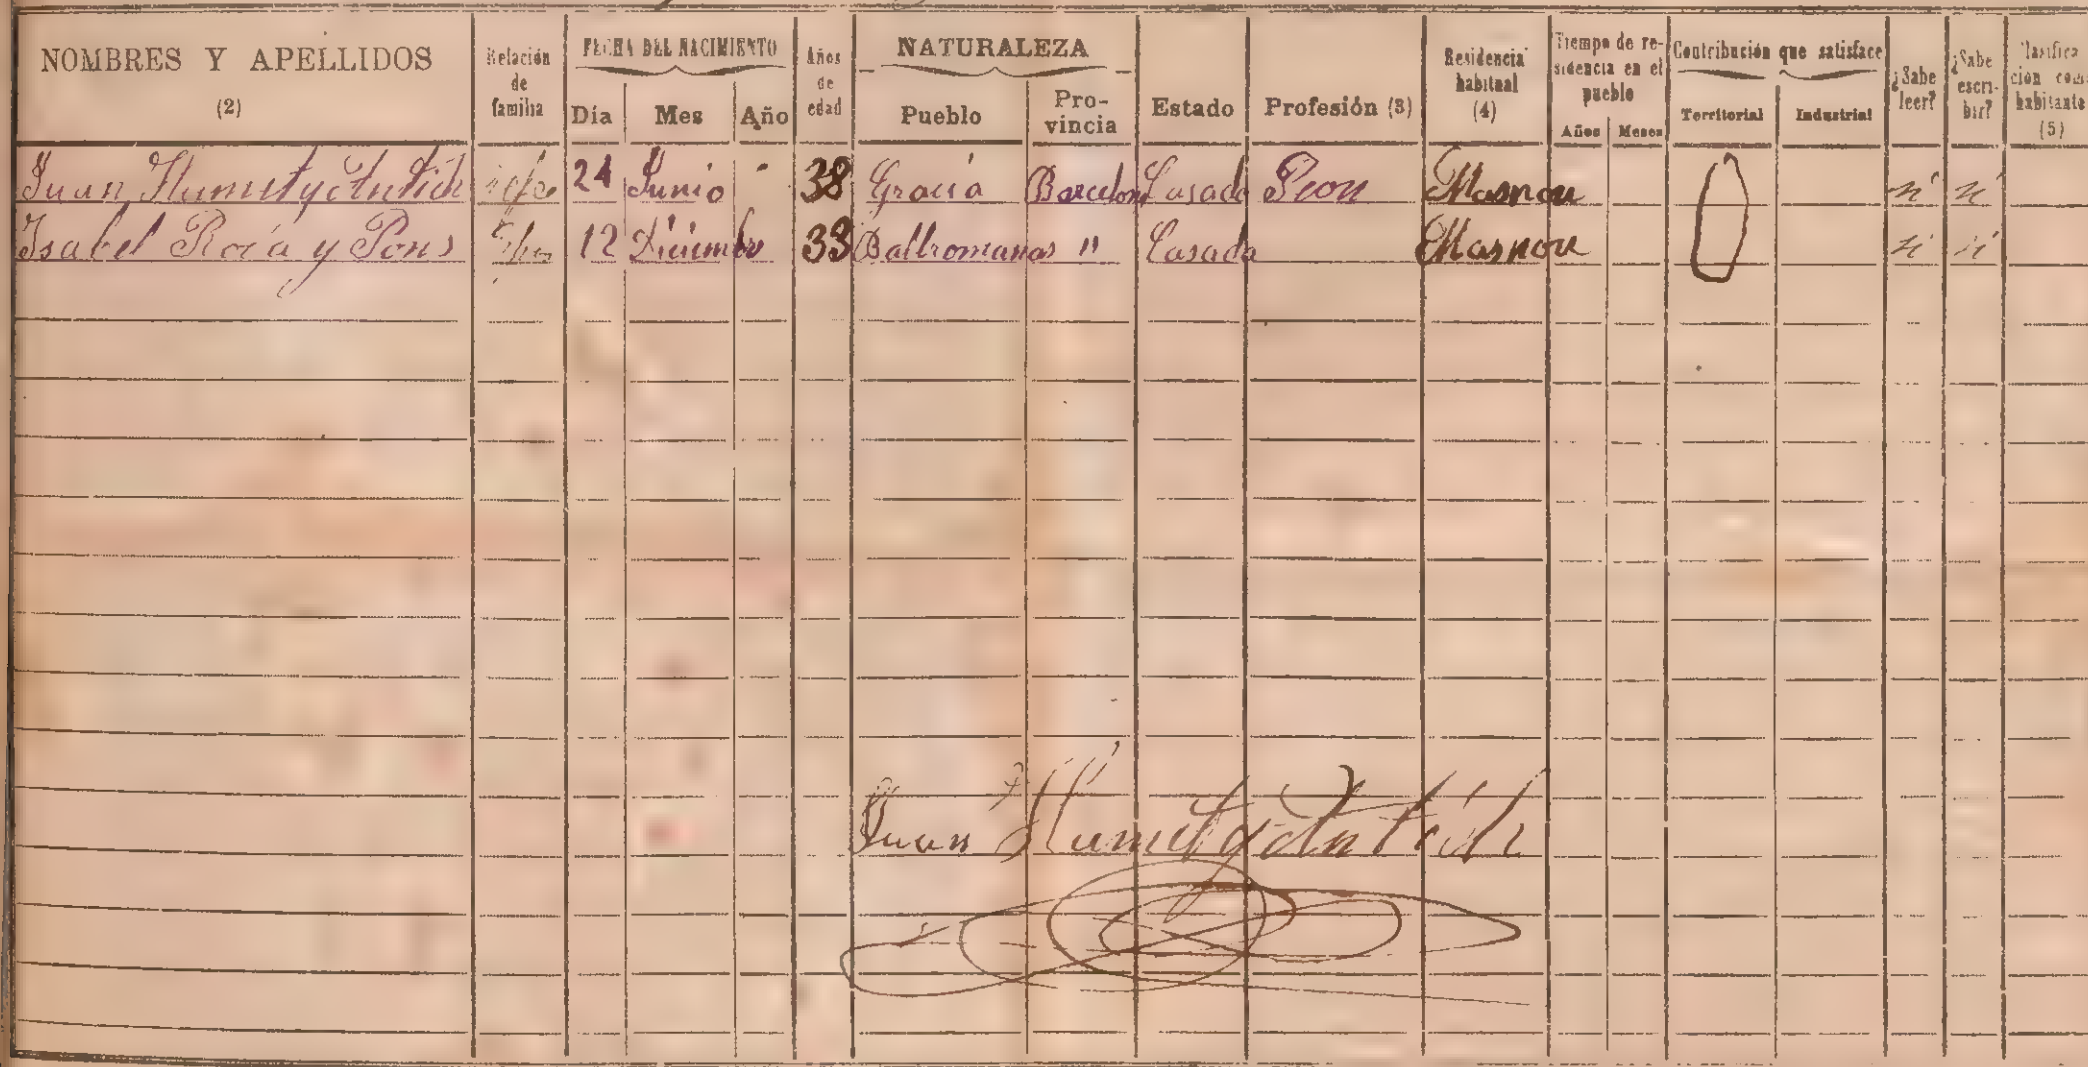 NOMBRES Y APELLIDOS
(2)
Relación de familia
FECHA DEL NACIMIENTO
Día Mes Año
Años de edad
NATURALEZA
Pueblo Pro-vincia
Estado
Profesión (3)
Residencia habitual (4)
Tiempo de re-sidencia en el pueblo
Años Meses
Contribución que satisface
Territorial Industrial
¿Sabe leer?
¿Sabe escri-bir?
Clasifica ción como habitante (5)
Juan Humet y Antich jefe 24 Junio 38 Gracia Barcelona Casado Peon Masnou 0 si si
Isabel Roca y Pons 12 Diciembre 33 Vallromanas " Casada Masnou si si
Juan Humet y Antich